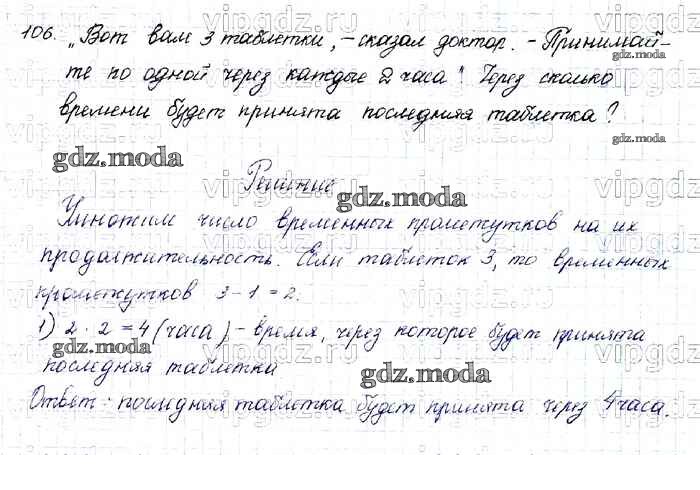 106. „Вот вам 3 таблетки, – сказал доктор. – Принимай-
те по одной через каждые 2 часа". Через сколько
времени будет принята последняя таблетка?
gdz.moda
gdz.moda
gdz.moda
Решение
gdz.moda
Умножим число временных промежутков на их
продолжительность. Если таблеток 3, то временных
промежутков 3-1=2.
1) 2·2=4 (часа) – время, через которое будет принята
gdz.moda
последняя таблетка
gdz.moda
Ответ: последняя таблетка будет принята через 4 часа.